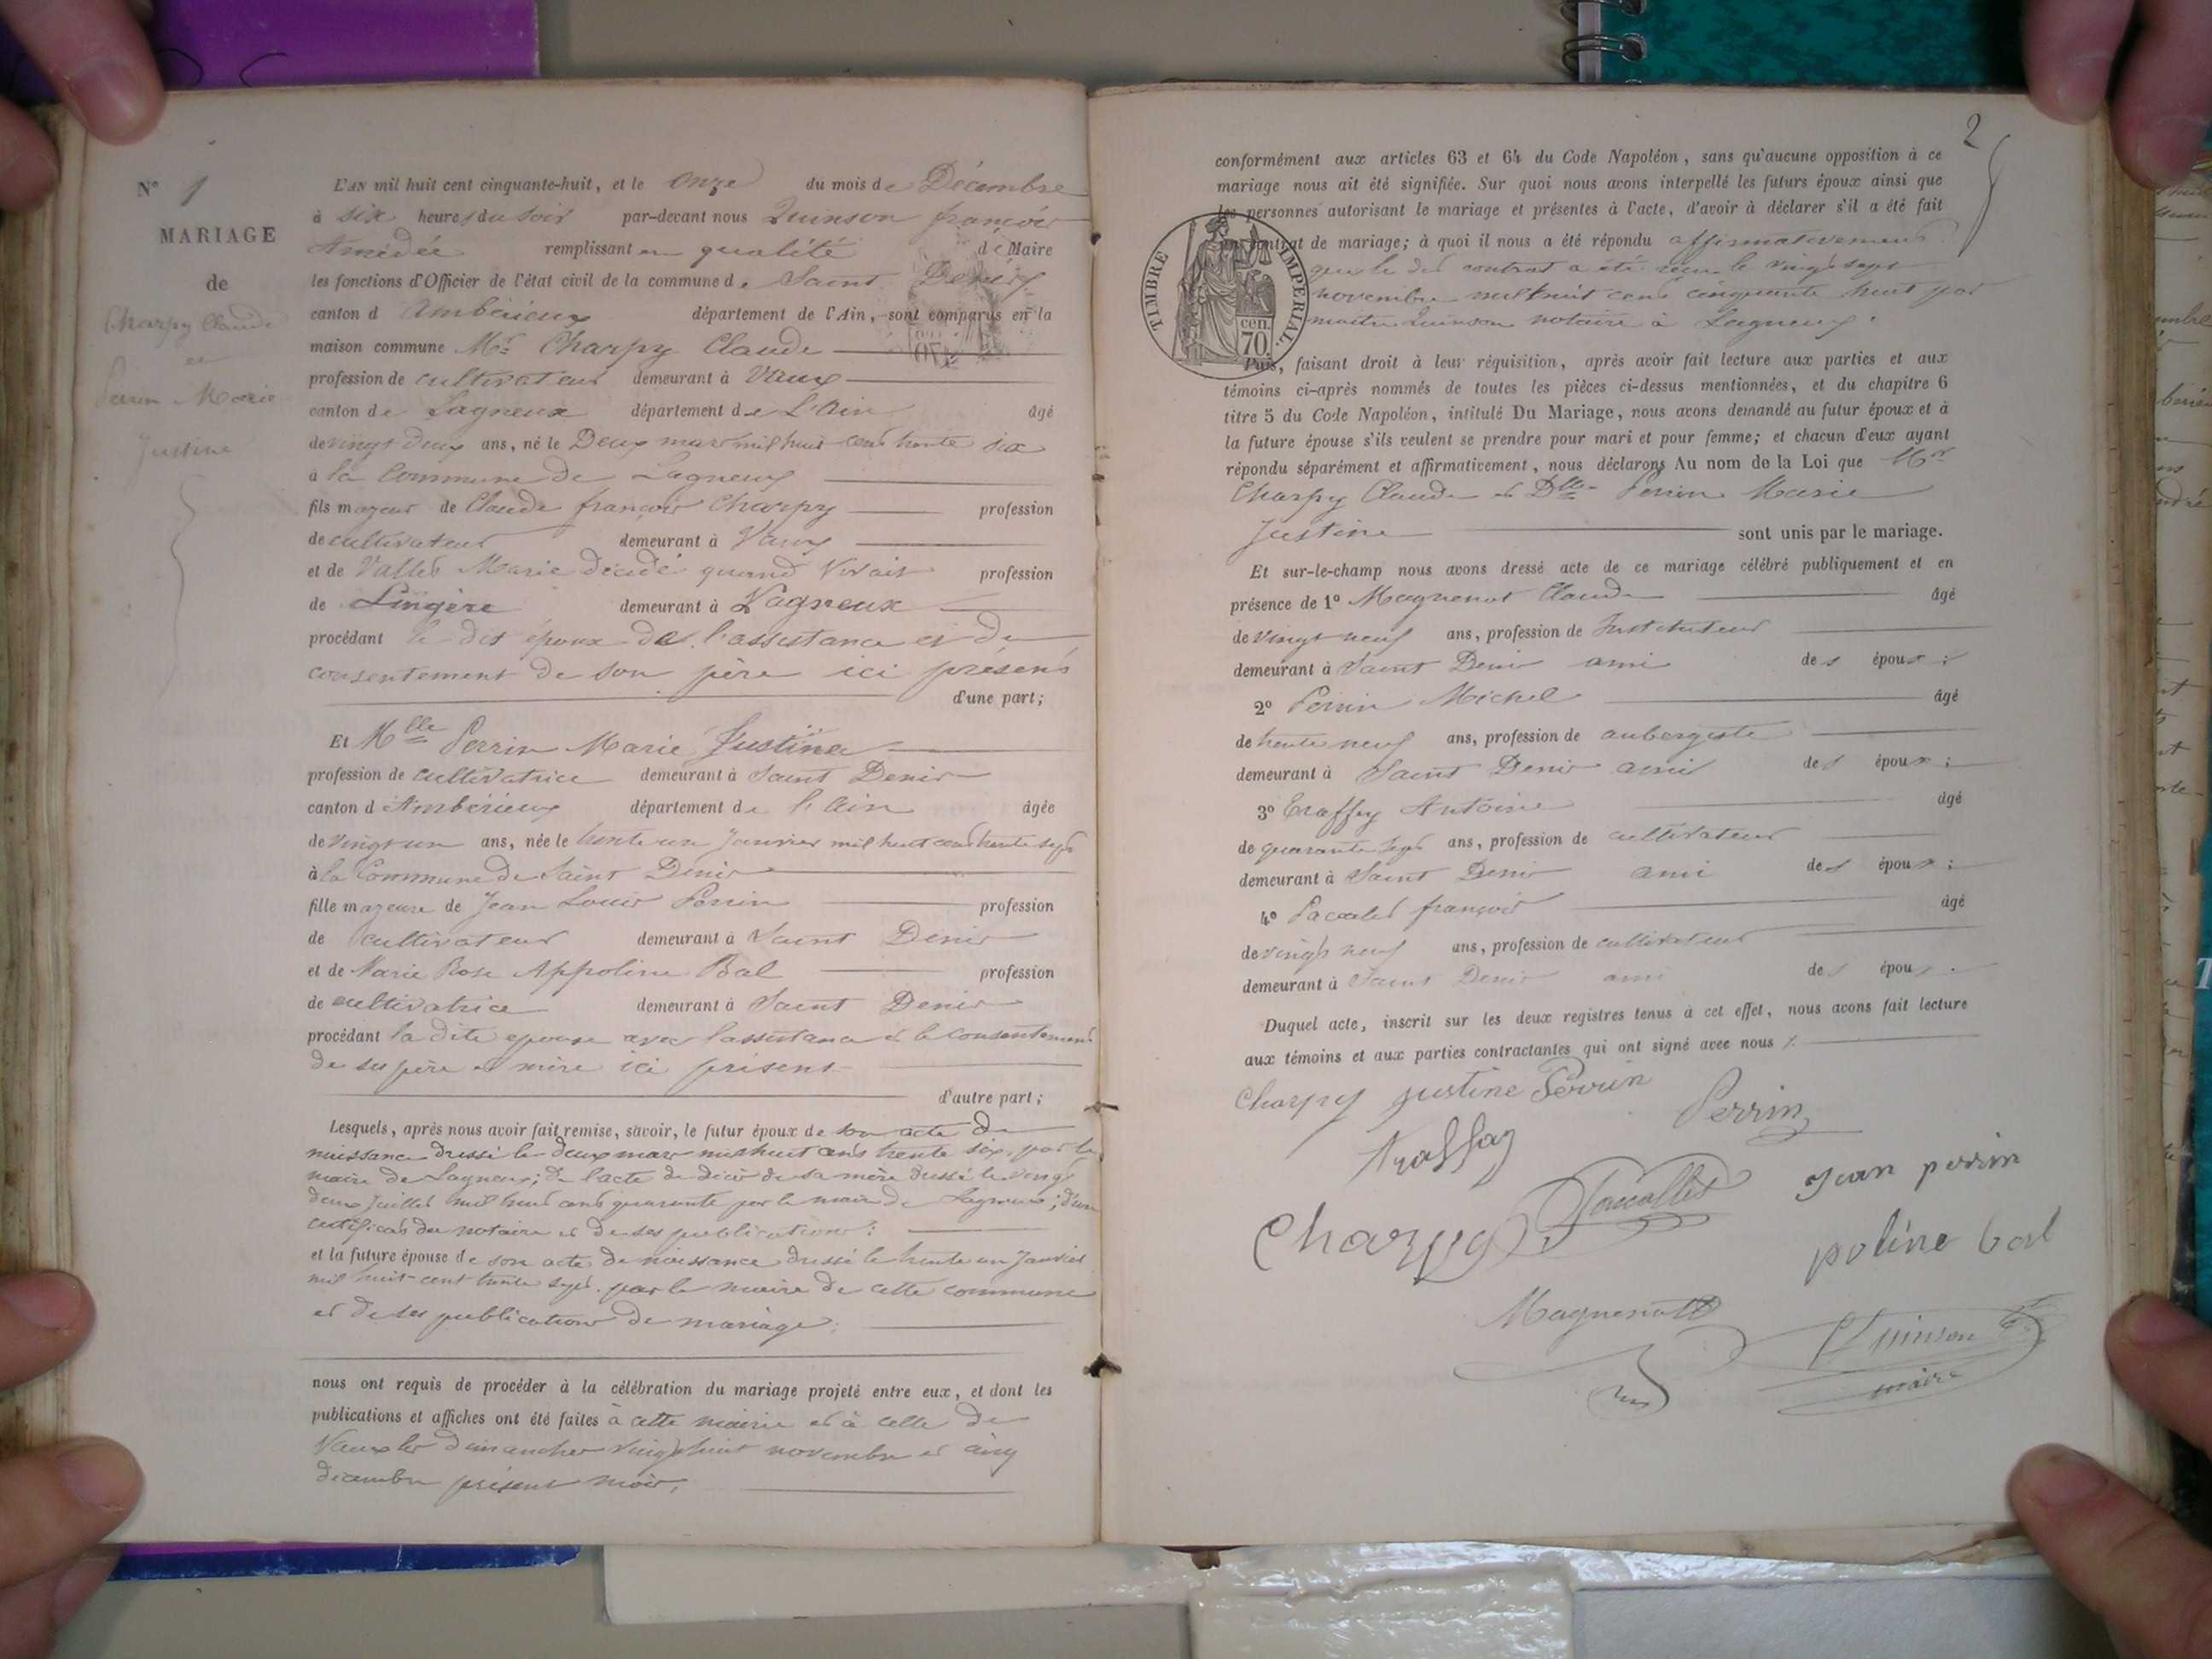 N° 1
MARIAGE
de
Charpy Claude
et
Perrin Marie
Justine
L'AN mil huit cent cinquante-huit, et le onze du mois de Décembre
à six heures du soir par-devant nous Quinson françois
Amédée remplissant en qualité de Maire
les fonctions d'Officier de l'état civil de la commune de Saint Denis
canton d Ambérieux département de l'Ain, sont comparus en la
maison commune Mr Charpy Claude
profession de cultivateur demeurant à Vaux
canton de Lagneux département de L'Ain âgé
de vingt deux ans, né le Deux mars mil huit cent trente six
à la Commune de Lagneux
fils majeur de Claude françois Charpy profession
de cultivateur demeurant à Vaux
et de Vallet Marie décédé quand vivait profession
de Lingère demeurant à Lagneux
procédant le dit époux de l'assistance et du
consentement de son père ici présent
d'une part;
Et Mlle Perrin Marie Justine
profession de cultivatrice demeurant à Saint Denis
canton d Ambérieux département de l'Ain âgée
de vingt un ans, née le trente un Janvier mil huit cent trente sept
à la Commune de Saint Denis
fille majeure de Jean Louis Perrin profession
de cultivateur demeurant à Saint Denis
et de Marie Rose Appoline Bal profession
de cultivatrice demeurant à Saint Denis
procédant la dite epouse avec l'assistance et le consentement
de ses père et mère ici présent
d'autre part;
Lesquels, après nous avoir fait remise, savoir, le futur époux de son acte de
naissance dressé le deux mars mil huit cent trente six, par le
maire de Lagneux; de l'acte de décès de sa mère dressé le vingt
deux Juillet mil huit cent quarante par le maire de Lagneux; d'un
certificat du notaire et de ses publications:
et la future épouse de son acte de naissance dressé le trente un Janvier
mil huit-cent trente sept. par le maire de cette commune
et de ses publications de mariage;
nous ont requis de procéder à la célébration du mariage projeté entre eux, et dont les
publications et affiches ont été faites à cette mairie et à celle de
Vaux les dimanches vingt huit novembre et cinq
décembre présent mois;
2
conformément aux articles 63 et 64 du Code Napoléon, sans qu'aucune opposition à ce
mariage nous ait été signifiée. Sur quoi nous avons interpellé les futurs époux ainsi que
les personnes autorisant le mariage et présentes à l'acte, d'avoir à déclarer s'il a été fait
un contrat de mariage; à quoi il nous a été répondu affirmativement
que le dit contrat a été reçu le vingt sept
novembre mil huit cent cinquante huit par
maître Quinson notaire à Lagneux.
TIMBRE IMPERIAL.
cen.
70
Puis, faisant droit à leur réquisition, après avoir fait lecture aux parties et aux
témoins ci-après nommés de toutes les pièces ci-dessus mentionnées, et du chapitre 6
titre 5 du Code Napoléon, intitulé Du Mariage, nous avons demandé au futur époux et à
la future épouse s'ils veulent se prendre pour mari et pour femme; et chacun d'eux ayant
répondu séparément et affirmativement, nous déclarons Au nom de la Loi que Mr
Charpy Claude et Dlle Perrin Marie
Justine sont unis par le mariage.
Et sur-le-champ nous avons dressé acte de ce mariage célébré publiquement et en
présence de 1° Magnenot Claude âgé
de vingt neuf ans, profession de Instituteur
demeurant à Saint Denis ami des époux;
2° Perrin Michel âgé
de trente neuf ans, profession de aubergiste
demeurant à Saint Denis ami des époux;
3° Traffay Antoine âgé
de quarante sept ans, profession de cultivateur
demeurant à Saint Denis ami des époux;
4° Pacallet françois âgé
de vingt neuf ans, profession de cultivateur
demeurant à Saint Denis ami des époux.
Duquel acte, inscrit sur les deux registres tenus à cet effet, nous avons fait lecture
aux témoins et aux parties contractantes qui ont signé avec nous
Charpy justine Perrin
Perrin
traffay
Jean perrin
Pacallet
Charpy
poline bal
Magnenot
Quinson
maire